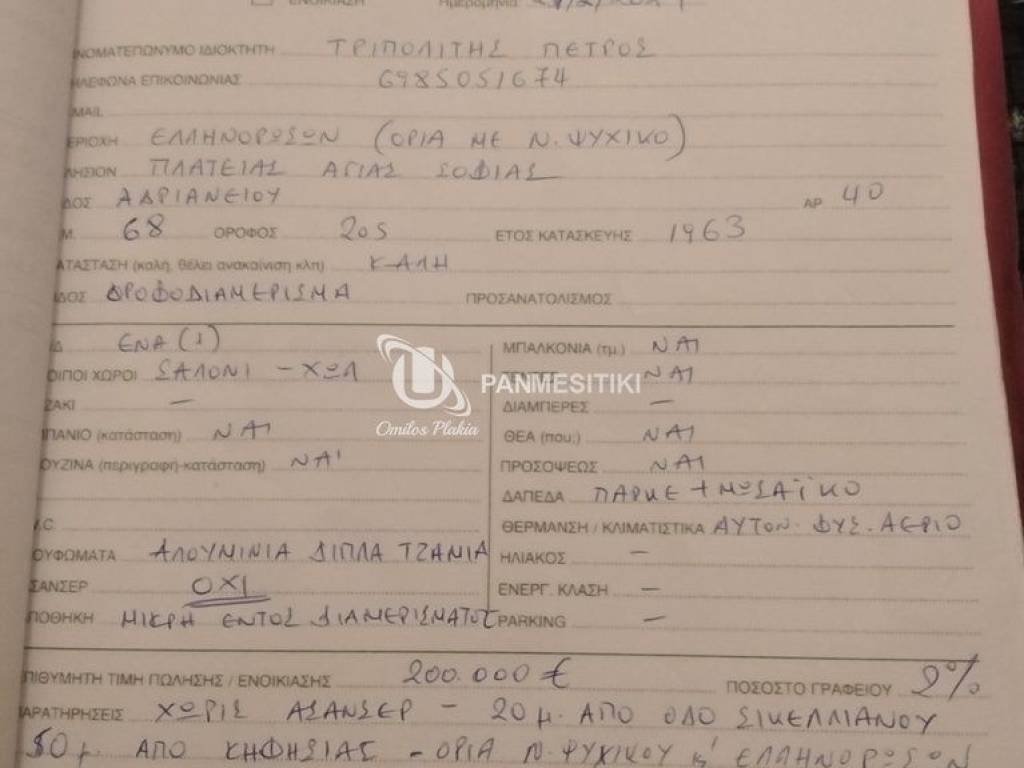 ΕΝΟΙΚΙΑΣΗ Ημερομηνία
ΝΟΜΑΤΕΠΩΝΥΜΟ ΙΔΙΟΚΤΗΤΗ ΤΡΙΠΟΛΙΤΗΣ ΠΕΤΡΟΣ
ΗΛΕΦΩΝΑ ΕΠΙΚΟΙΝΩΝΙΑΣ 6985051674
MAIL
ΕΡΙΟΧΗ ΕΛΛΗΝΟΡΩΣΩΝ (ΟΡΙΑ ΜΕ Ν. ΨΥΧΙΚΟ)
ΛΗΣΙΟΝ ΠΛΑΤΕΙΑΣ ΑΓΙΑΣ ΣΟΦΙΑΣ
ΔΟΣ ΑΔΡΙΑΝΕΙΟΥ ΑΡ 40
Μ. 68 ΟΡΟΦΟΣ 2ος ΕΤΟΣ ΚΑΤΑΣΚΕΥΗΣ 1963
ΑΤΑΣΤΑΣΗ (καλή, θέλει ανακαίνιση κλπ) ΚΑΛΗ
ΔΟΣ ΟΡΟΦΟΔΙΑΜΕΡΙΣΜΑ ΠΡΟΣΑΝΑΤΟΛΙΣΜΟΣ
Δ ΕΝΑ (1) ΜΠΑΛΚΟΝΙΑ (τμ.) ΝΑΙ
ΟΙΠΟΙ ΧΩΡΟΙ ΣΑΛΟΝΙ - ΧΩΛ ΝΑΙ
ΖΑΚΙ — ΔΙΑΜΠΕΡΕΣ —
ΠΑΝΙΟ (κατάσταση) ΝΑΙ ΘΕΑ (που;) ΝΑΙ
ΟΥΖΙΝΑ (περιγραφή-κατάσταση) ΝΑΙ ΠΡΟΣΟΨΕΩΣ ΝΑΙ
ΔΑΠΕΔΑ ΠΑΡΚΕ + ΜΩΣΑΪΚΟ
.C. ΘΕΡΜΑΝΣΗ / ΚΛΙΜΑΤΙΣΤΙΚΑ ΑΥΤΟΝ. ΦΥΣ. ΑΕΡΙΟ
ΟΥΦΩΜΑΤΑ ΑΛΟΥΜΙΝΙΑ ΔΙΠΛΑ ΤΖΑΜΙΑ ΗΛΙΑΚΟΣ —
ΣΑΝΣΕΡ ΟΧΙ ΕΝΕΡΓ. ΚΛΑΣΗ —
ΠΟΘΗΚΗ ΜΙΚΡΗ ΕΝΤΟΣ ΔΙΑΜΕΡΙΣΜΑΤΟΣ PARKING —
ΠΙΘΥΜΗΤΗ ΤΙΜΗ ΠΩΛΗΣΗΣ / ΕΝΟΙΚΙΑΣΗΣ 200.000 € ΠΟΣΟΣΤΟ ΓΡΑΦΕΙΟΥ 2%
ΑΡΑΤΗΡΗΣΕΙΣ ΧΩΡΙΣ ΑΣΑΝΣΕΡ - 20 μ. ΑΠΟ ΟΔΟ ΣΙΚΕΛΛΙΑΝΟΥ
50 μ. ΑΠΟ ΚΗΦΗΣΙΑΣ - ΟΡΙΑ Ν. ΨΥΧΙΚΟΥ κ' ΕΛΛΗΝΟΡΩΣΩΝ
PANMESITIKI
Omilos Plakia